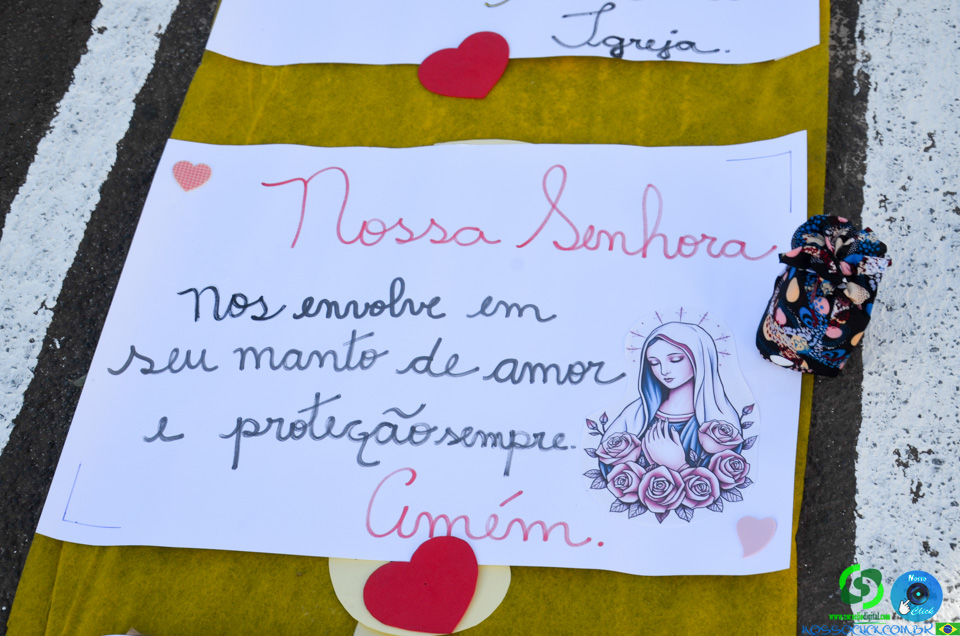 Igreja.
Nossa Senhora
Nos envolve em
seu manto de amor
e proteção sempre.
Amém.
Nosso
Click
www.cornelio​digital.com
NOSSOCLICK.COM.BR